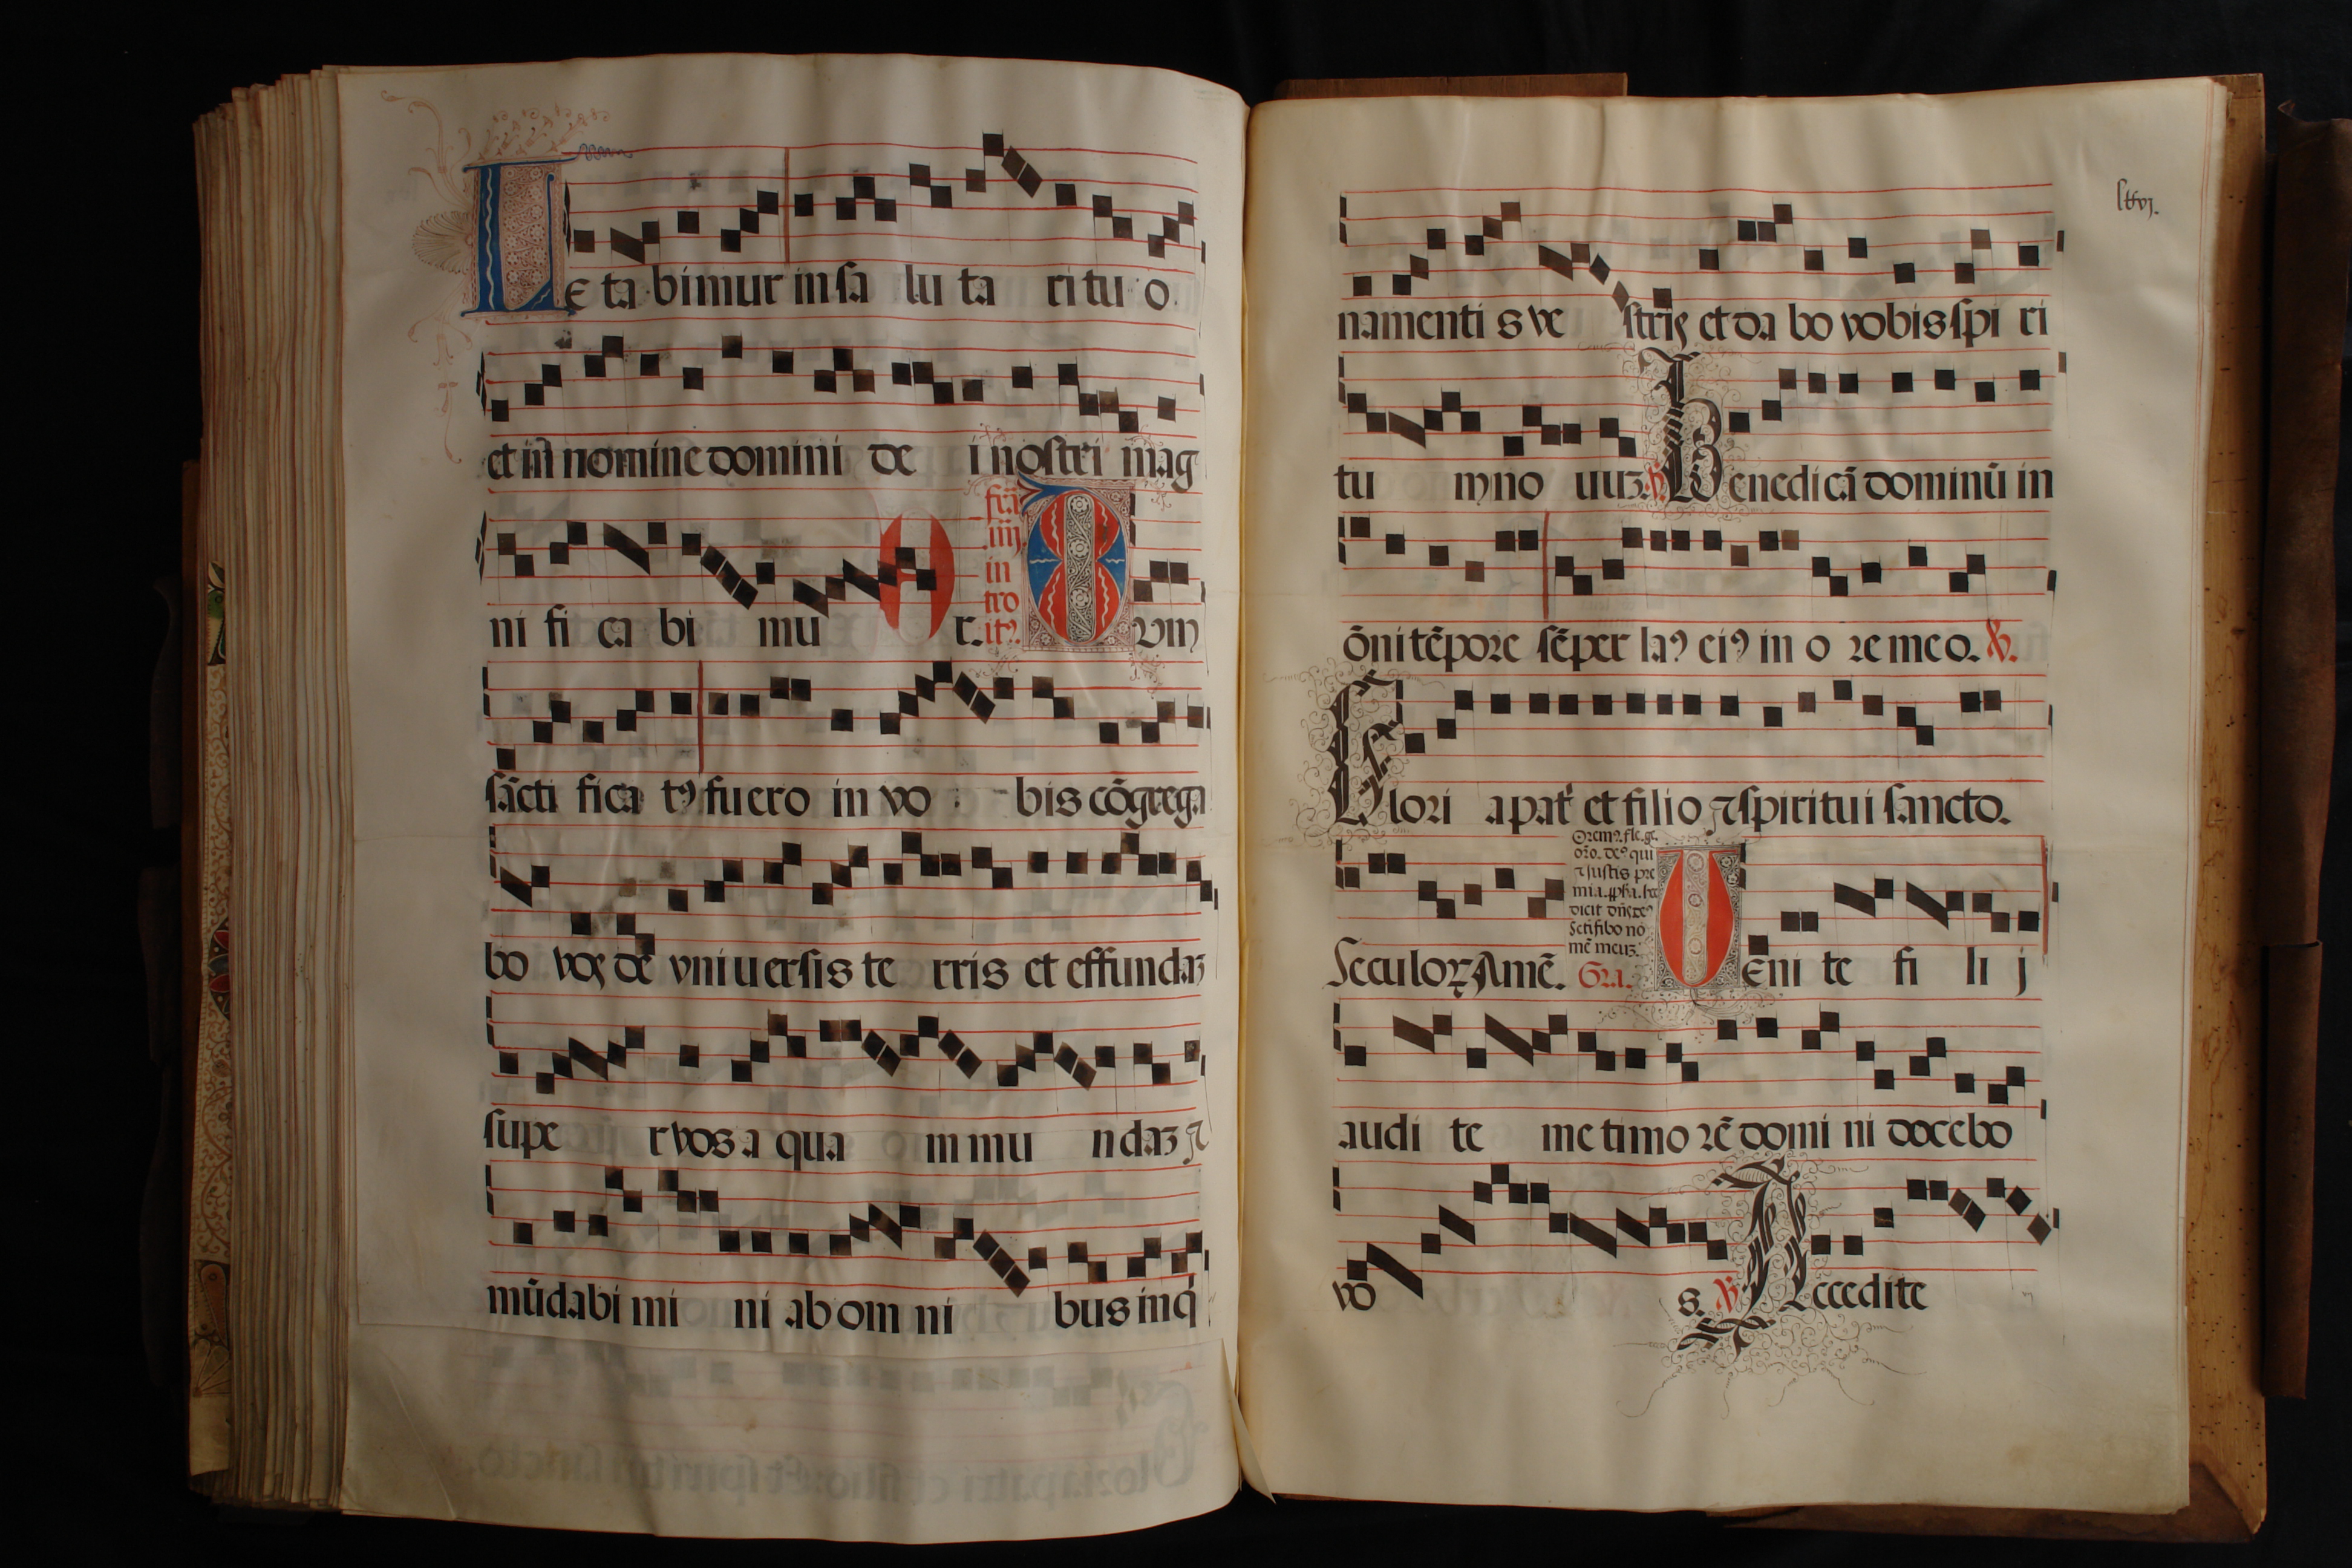 Le ta bimur in sa lu ta ri tu o.
et in nomine domini de i nostri mag
ni fi ca bi mu r.
fia
iiij
in
tro
itꝰ.
Cvm
sācti fica tꝰ fuero in vo bis cōgrega
bo vos de vniuersis te rris et effundaꝫ
supe r vos a qua m mu ndaꝫ ⁊
mūdabi mi ni ab om ni bus inq̄
lxvj.
namenti s ve stris et da bo vobis spi ri
tu m no uuꝫ. ps Benedicā dominū in
ōni tēpore sēper laꝰ eiꝰ in o re meo. ℣.
Glori a pat̄ et filio ⁊ spiritui sancto.
Seculoꝝ Amē.
Oremꝰ. fle. ge.
oro. deꝰ qui
⁊ iustis pre
mia. ꝓpha. hec
dicit dn̄s deꝰ
Sctifibo no
mē meuꝫ.
Gra.
Ueni te fi li j
audi te me timo rē domi ni docebo
vo s. ℣ Accedite